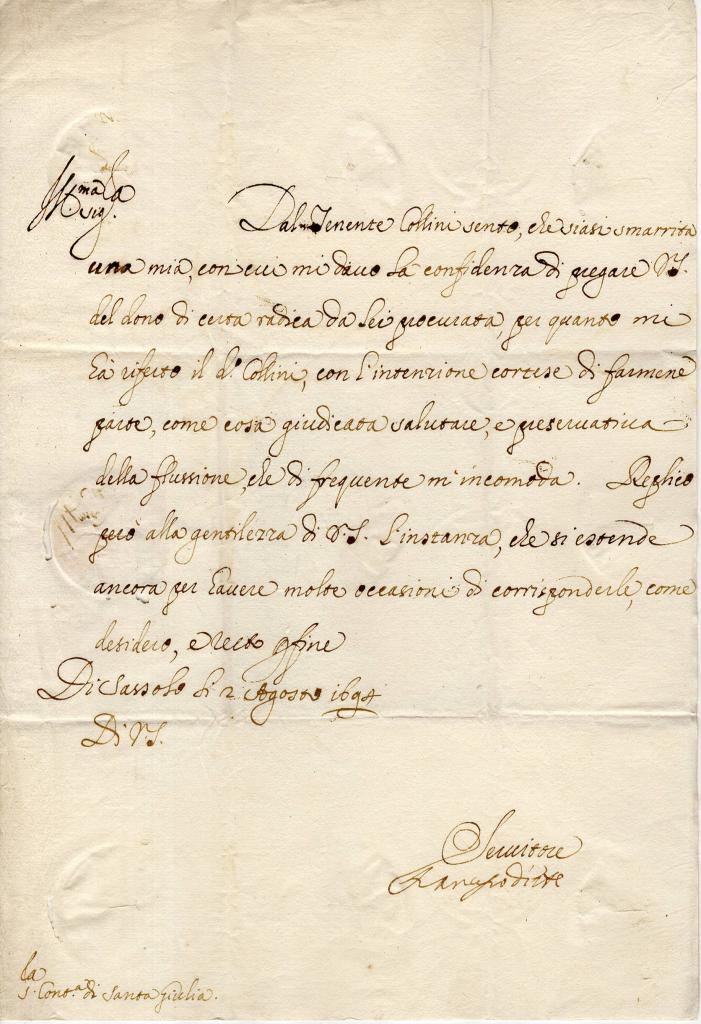 Ill.ma Sig.ra
Dal Tenente Collini sento, che siasi smarrita
una mia, con cui mi davo la confidenza di pregare V.S.
del dono di certa radica da lei procurata, per quanto mi
hà riferto il d.º Collini, con l'intenzione cortese di farmene
parte, come cosa giudicata salutare, e preservativa
della flussione, che di frequente m'incomoda. Replico
però alla gentilezza di V.S. l'instanza, che si estende
ancora per havere molte occasioni di corrisponderle, come
desidero, e resto
Di Sassolo li 2 Agosto 1694
Di V.S.
Servitore
la
S. Cont.a di Santa Giulia.